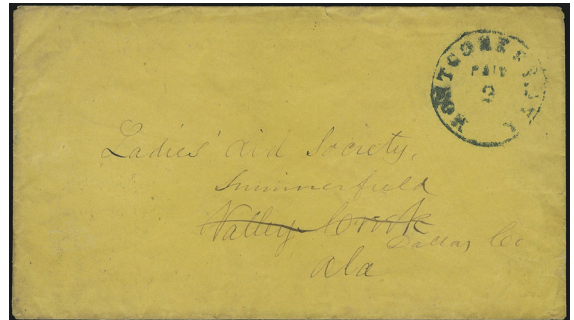 MONTGOMERY ALA
PAID
2
Ladies' Aid Society,
Summerfield
Valley Creek
Dallas Co
Ala